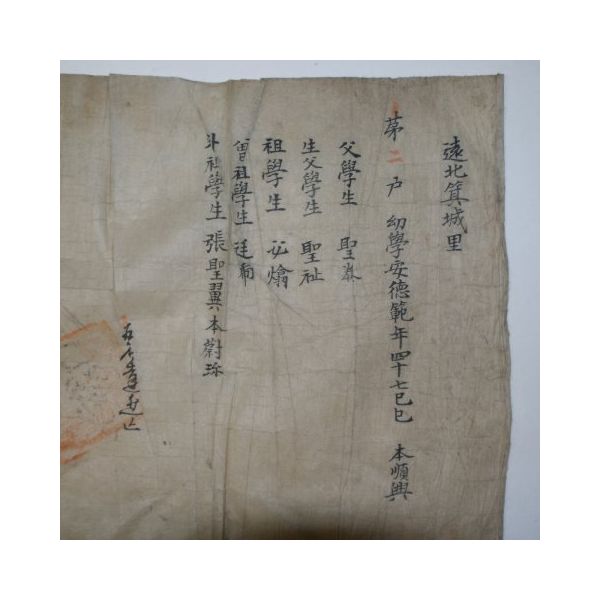 遠北箕城里
第二戶 幼學安德範年四十七己巳 本順興
父學生 聖泰
生父學生 聖祉
祖學生 必熻
曾祖學生 廷
外祖學生 張聖翼 本蔚珍